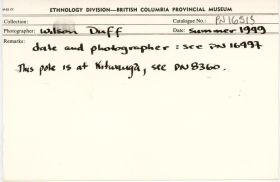 ETHNOLOGY DIVISION—BRITISH COLUMBIA PROVINCIAL MUSEUM
Collection: Catalogue No.: PN16515
Photographer: Wilson Duff Date: Summer 1949
Remarks:
date and photographer: see PN 16497
This pole is at Kitwanga, see PN8360.